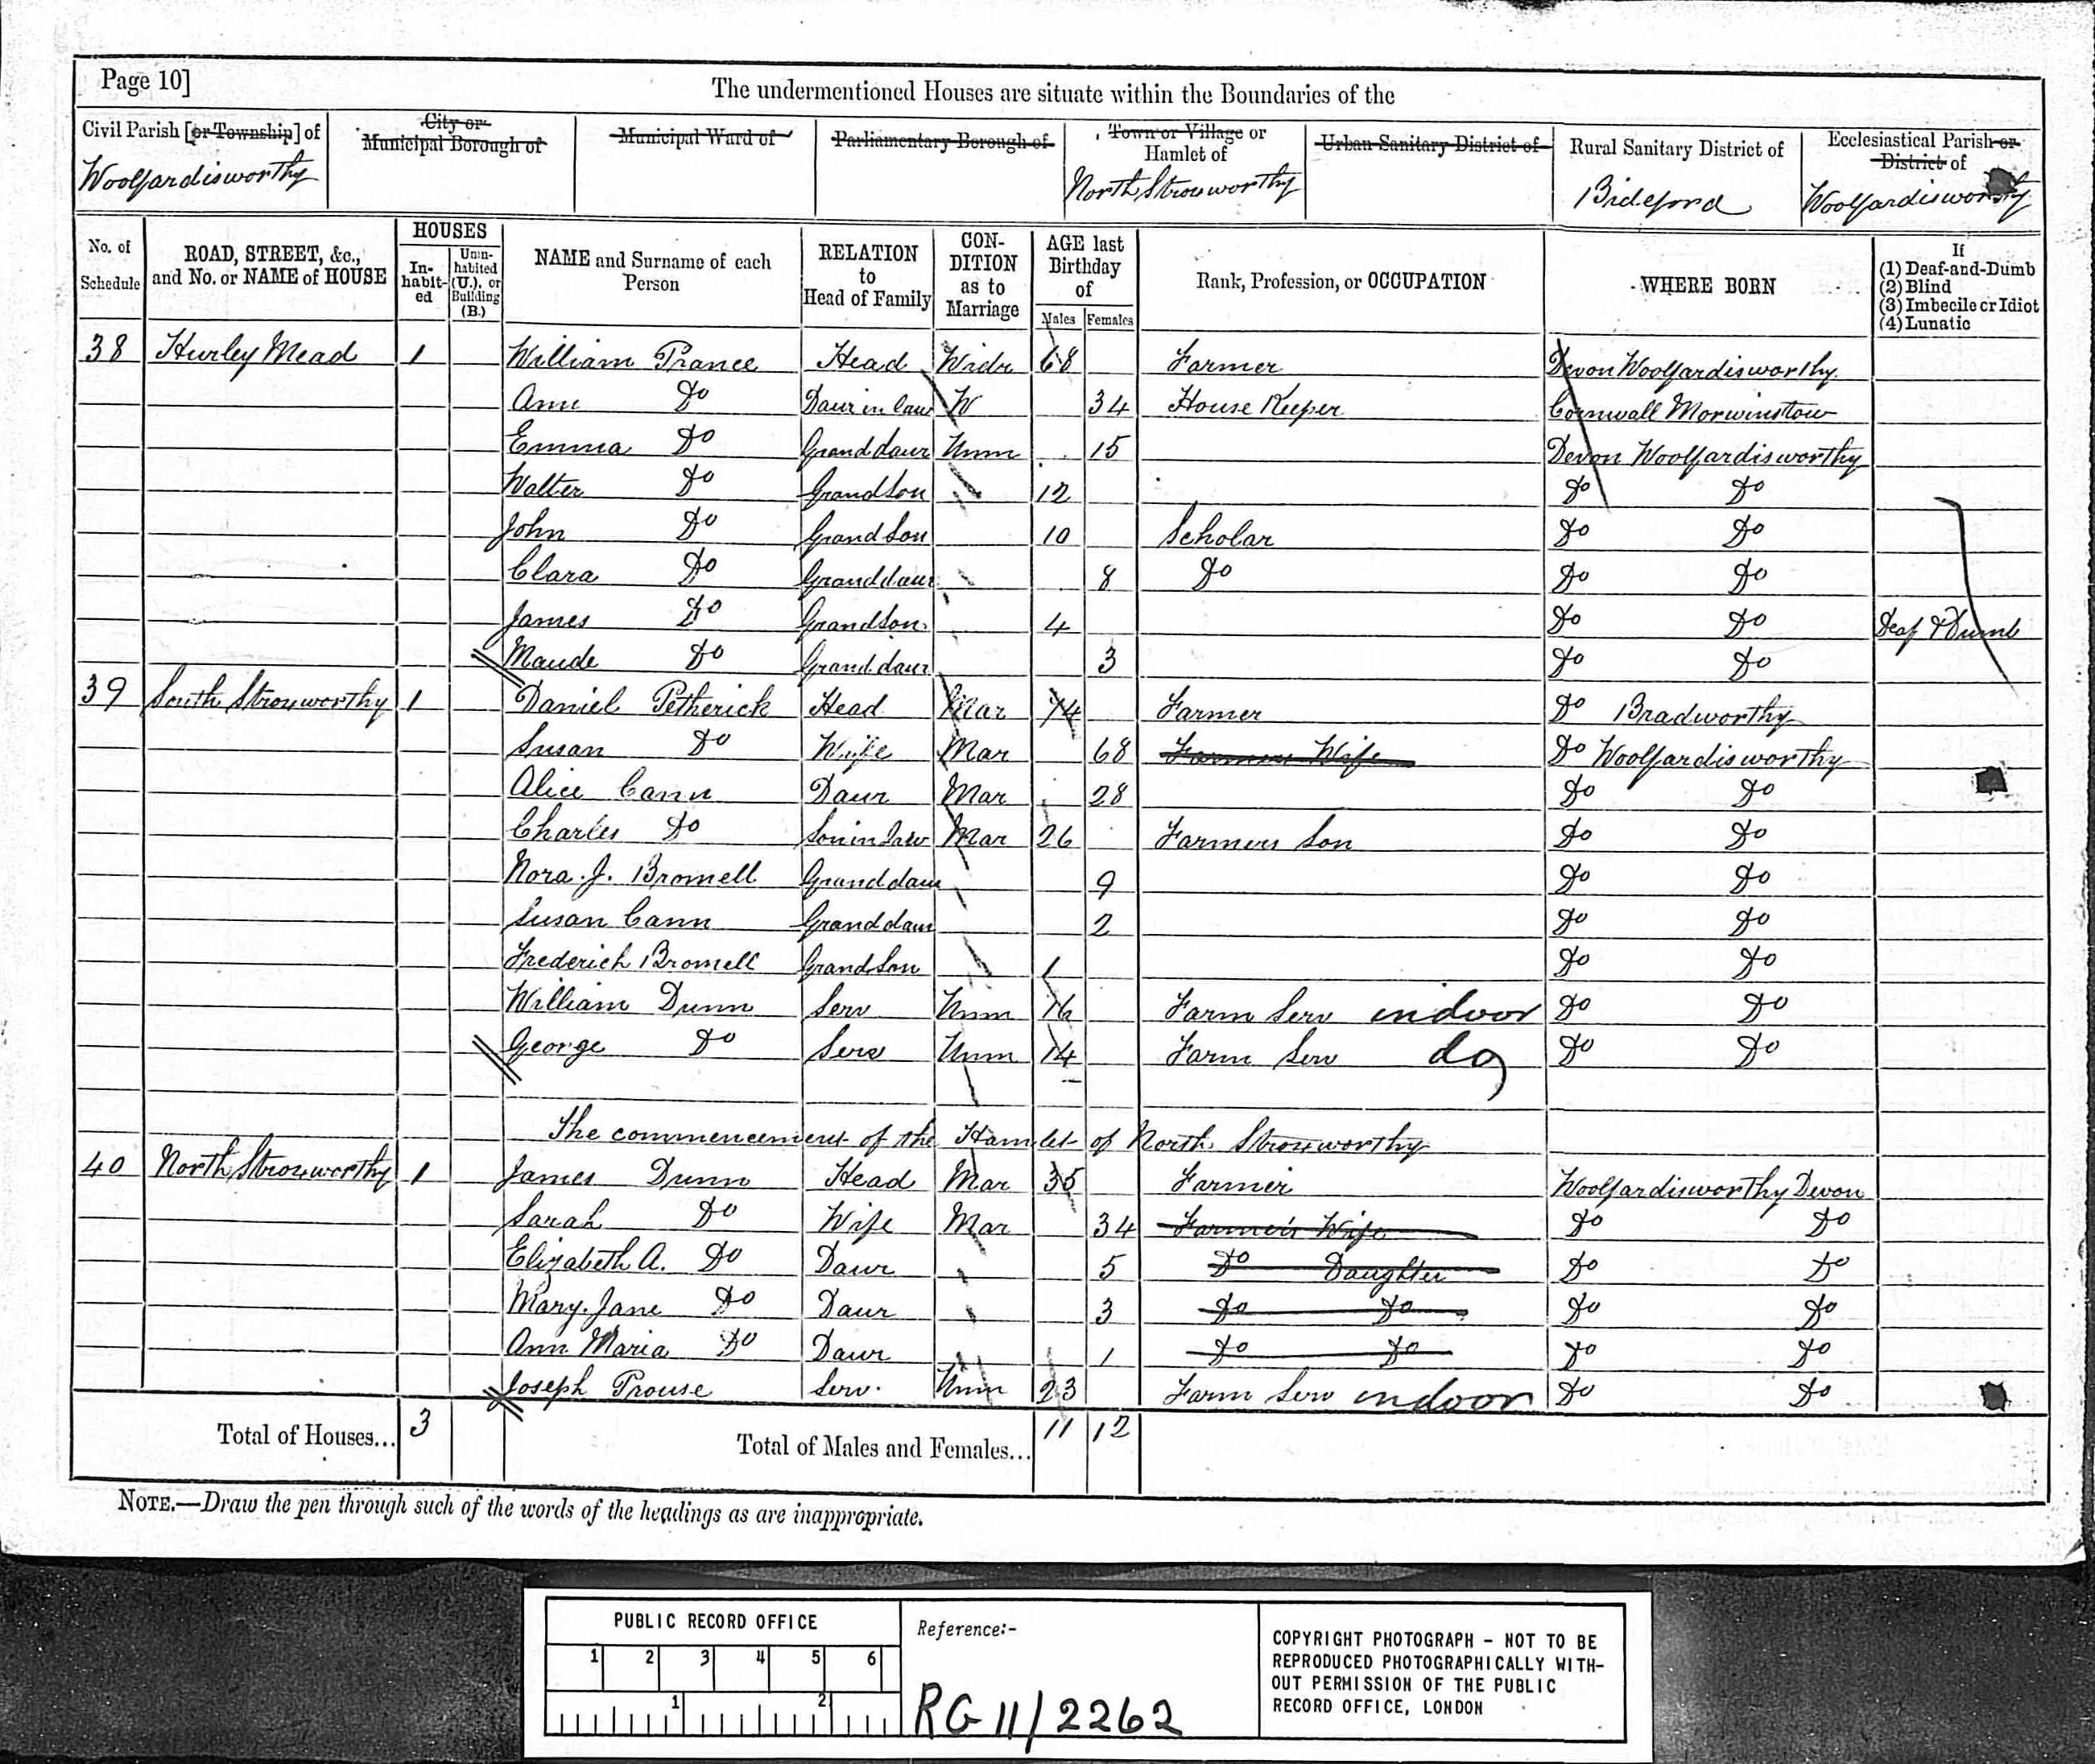 Page 10]
The undermentioned Houses are situate within the Boundaries of the
Civil Parish [or Township] of
City or Municipal Borough of
Municipal Ward of
Parliamentary Borough of
Town or Village or Hamlet of
Urban Sanitary District of
Rural Sanitary District of
Ecclesiastical Parish or District of
Woolfardisworthy
North Stroxworthy
Bideford
Woolfardisworthy
No. of Schedule
ROAD, STREET, &c., and No. or NAME of HOUSE
HOUSES
In-habit-ed
Unin-habited (U.), or Building (B.)
NAME and Surname of each Person
RELATION to Head of Family
CON-DITION as to Marriage
AGE last Birthday of
Males Females
Rank, Profession, or OCCUPATION
WHERE BORN
If
(1) Deaf-and-Dumb
(2) Blind
(3) Imbecile or Idiot
(4) Lunatic
38 Hurley Mead 1 William Prance Head Widr 68 Farmer Devon Woolfardisworthy
Ann Do Daur in law W 34 House Keeper Cornwall Morwinstow
Emma Do Grand daur Unm 15 Devon Woolfardisworthy
Walter Do Grand Son 12 Do Do
John Do Grand Son 10 Scholar Do Do
Clara Do Grand daur 8 Do Do Do
James Do Grandson 4 Do Do Deaf & Dumb
Maude Do Grand daur 3 Do Do
39 South Stroxworthy 1 Daniel Petherick Head Mar 74 Farmer Do Bradworthy
Susan Do Wife Mar 68 Farmers Wife Do Woolfardisworthy
Alice Cann Daur Mar 28 Do Do
Charles Do Son in Law Mar 26 Farmers Son Do Do
Nora. J. Bromell Grand daur 9 Do Do
Susan Cann Grand daur 2 Do Do
Frederick Bromell Grand Son 1 Do Do
William Dunn Serv Unm 16 Farm Serv indoor Do Do
George Do Serv Unm 14 Farm Serv do Do Do
The commencement of the Hamlet of North Stroxworthy
40 North Stroxworthy 1 James Dunn Head Mar 35 Farmer Woolfardisworthy Devon
Sarah Do Wife Mar 34 Farmer's Wife Do Do
Elizabeth A. Do Daur 5 Do Daughter Do Do
Mary Jane Do Daur 3 Do Do Do Do
Ann Maria Do Daur 1 Do Do Do Do
Joseph Prouse Serv. Unm 23 Farm Serv indoor Do Do
Total of Houses... 3 Total of Males and Females... 11 12
NOTE.—Draw the pen through such of the words of the headings as are inappropriate.
PUBLIC RECORD OFFICE
1 2 3 4 5 6
1 2
Reference:-
RG 11/2262
COPYRIGHT PHOTOGRAPH - NOT TO BE
REPRODUCED PHOTOGRAPHICALLY WITH-
OUT PERMISSION OF THE PUBLIC
RECORD OFFICE, LONDON